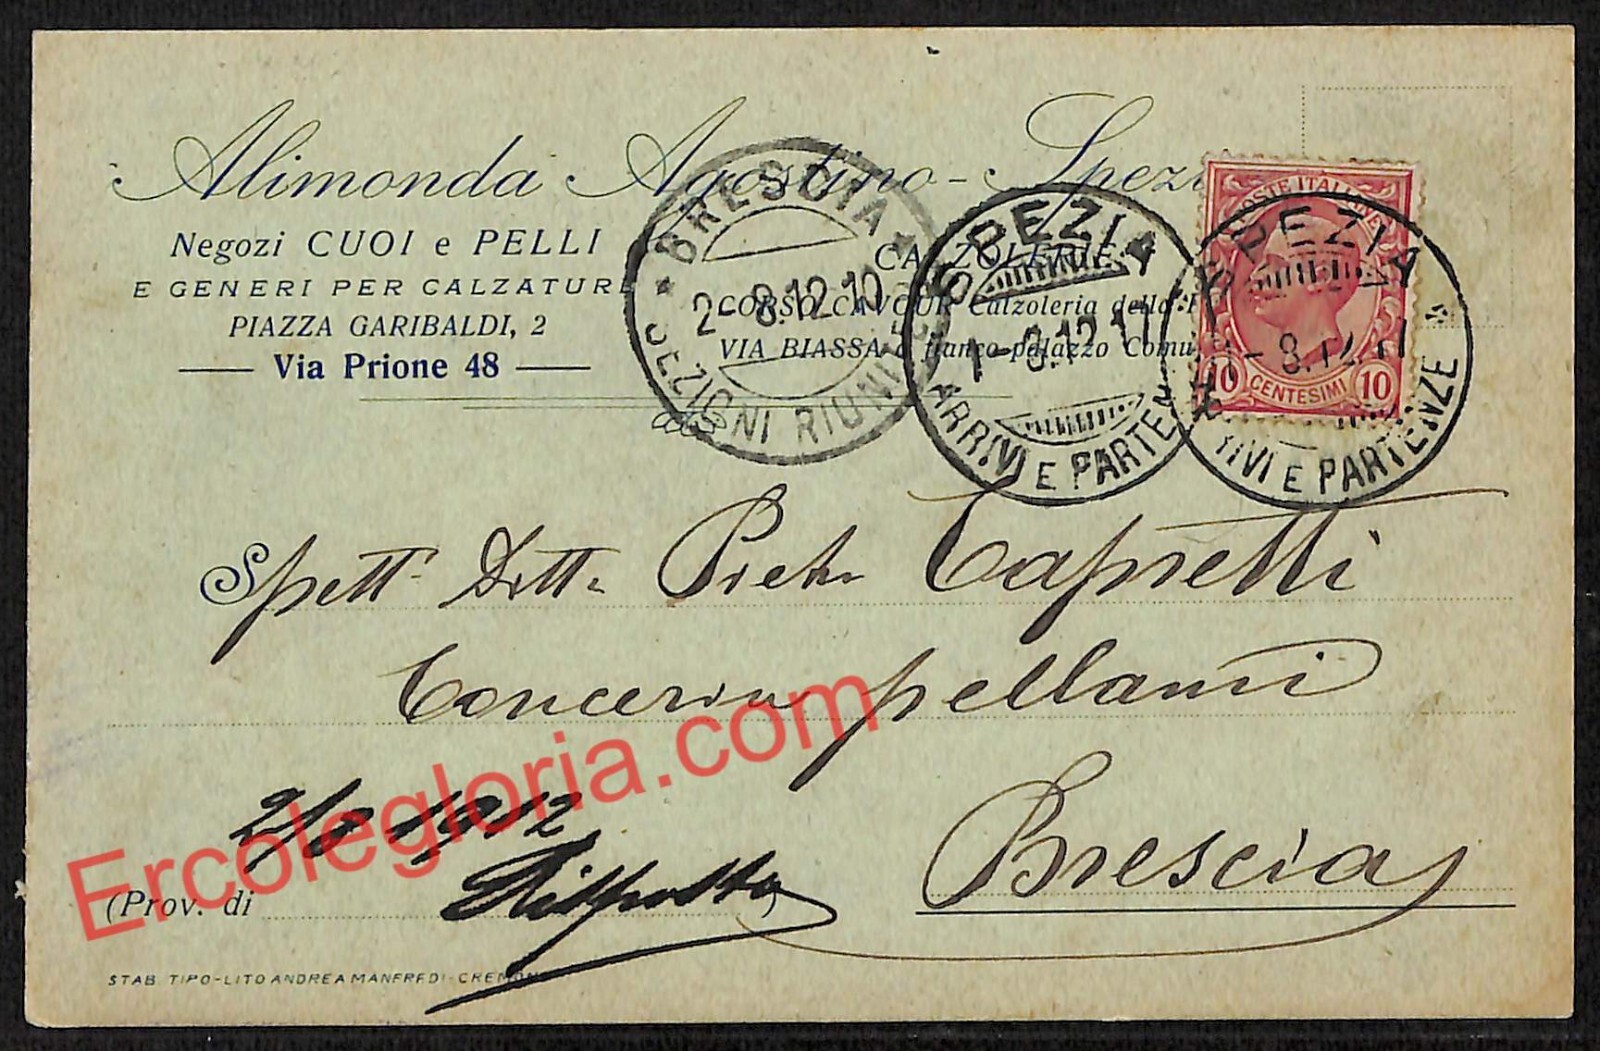 Alimonda Agostino - Spezia
Negozi CUOI e PELLI
E GENERI PER CALZATURE
PIAZZA GARIBALDI, 2
Via Prione 48
CALZOLERIE
CORSO CAVOUR Calzoleria della
VIA BIASSA a fianco palazzo Comu
BRESCIA
2-8.12.10
SEZIONI RIUNITE
SPEZIA
1-8.12.17
ARRIVI E PARTENZE
POSTE ITALIANE
10 CENTESIMI 10
SPEZIA
1-8.12.17
ARRIVI E PARTENZE
Spett. Ditta Pietro Capretti
Conceria pellami
Brescia
2/8 1912
Risposta
(Prov. di
STAB. TIPO-LITO ANDREA MANFREDI-CREMONA
Ercolegloria.com